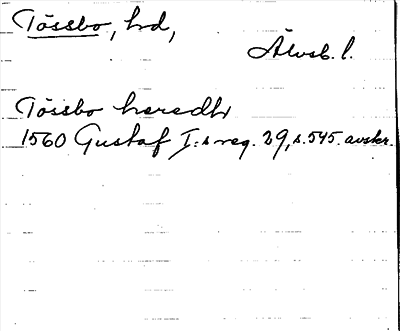 Tössbo, hd,
Älvsb. l.
Tössbo heredh
1560 Gustaf I:s reg. 29, s. 545. avskr.